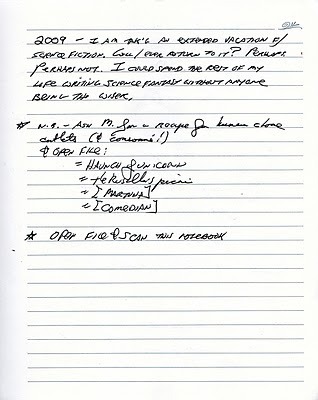 2009 - I AM TAK'G AN EXTENDED VACATION F/
SCIENCE FICTION. WILL I EVER RETURN TO IT? PERHAPS.
PERHAPS NOT. I COULD SPEND THE REST OF MY
LIFE WRITING SCIENCE FANTASY WITHOUT ANYONE
BEING THE WISER.
* N.B. - ASK M. for a recipe for human clone
cutlets (&
& OPEN FILE:
= HAUNCH of UNICORN
=
= [
= [COMEDIAN]
* OPEN FILE & SCAN THIS NOTEBOOK